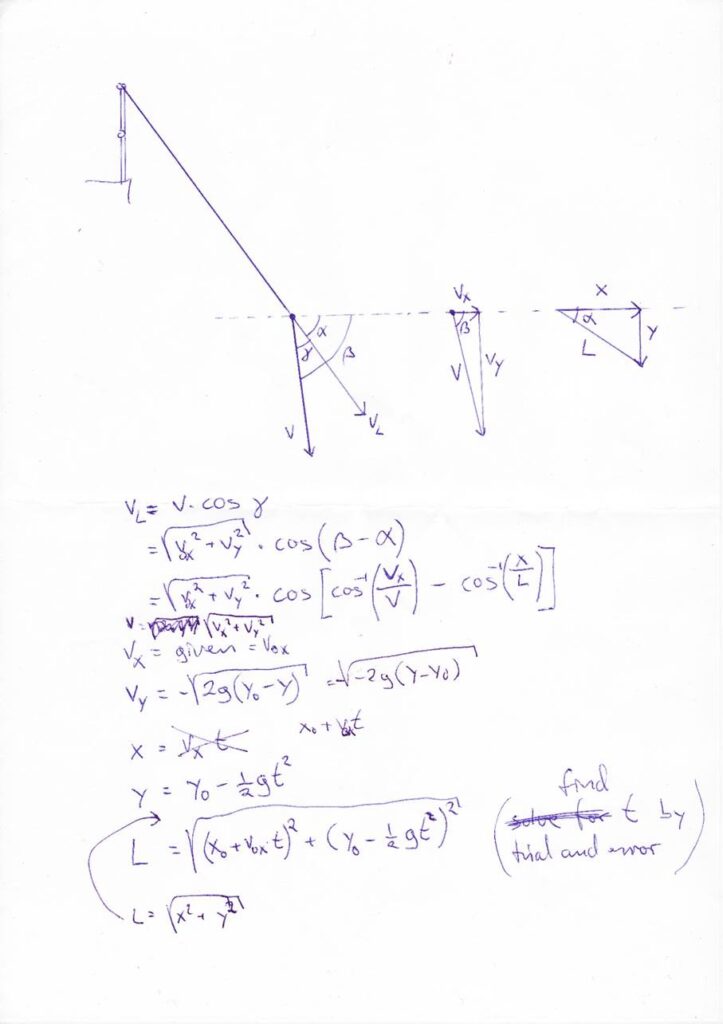 Vx
x
α
β
α
γ
β
y
V
Vy
L
V
VL
VL = V · cos γ
= √(Vx² + Vy²) · cos(β − α)
= √(Vx² + Vy²) · cos[cos⁻¹(Vx/V) − cos⁻¹(x/L)]
V = √(Vx² + Vy²)
Vx = given = V0x
Vy = -√(2g(y0 − y)) = -√(-2g(y − y0))
x = Vx t x0 + V0x t
y = y0 − ½gt²
L = √((x0 + V0x t)² + (y0 − ½gt²)²) (find
solve for t by
trial and error)
L = √(x² + y²)